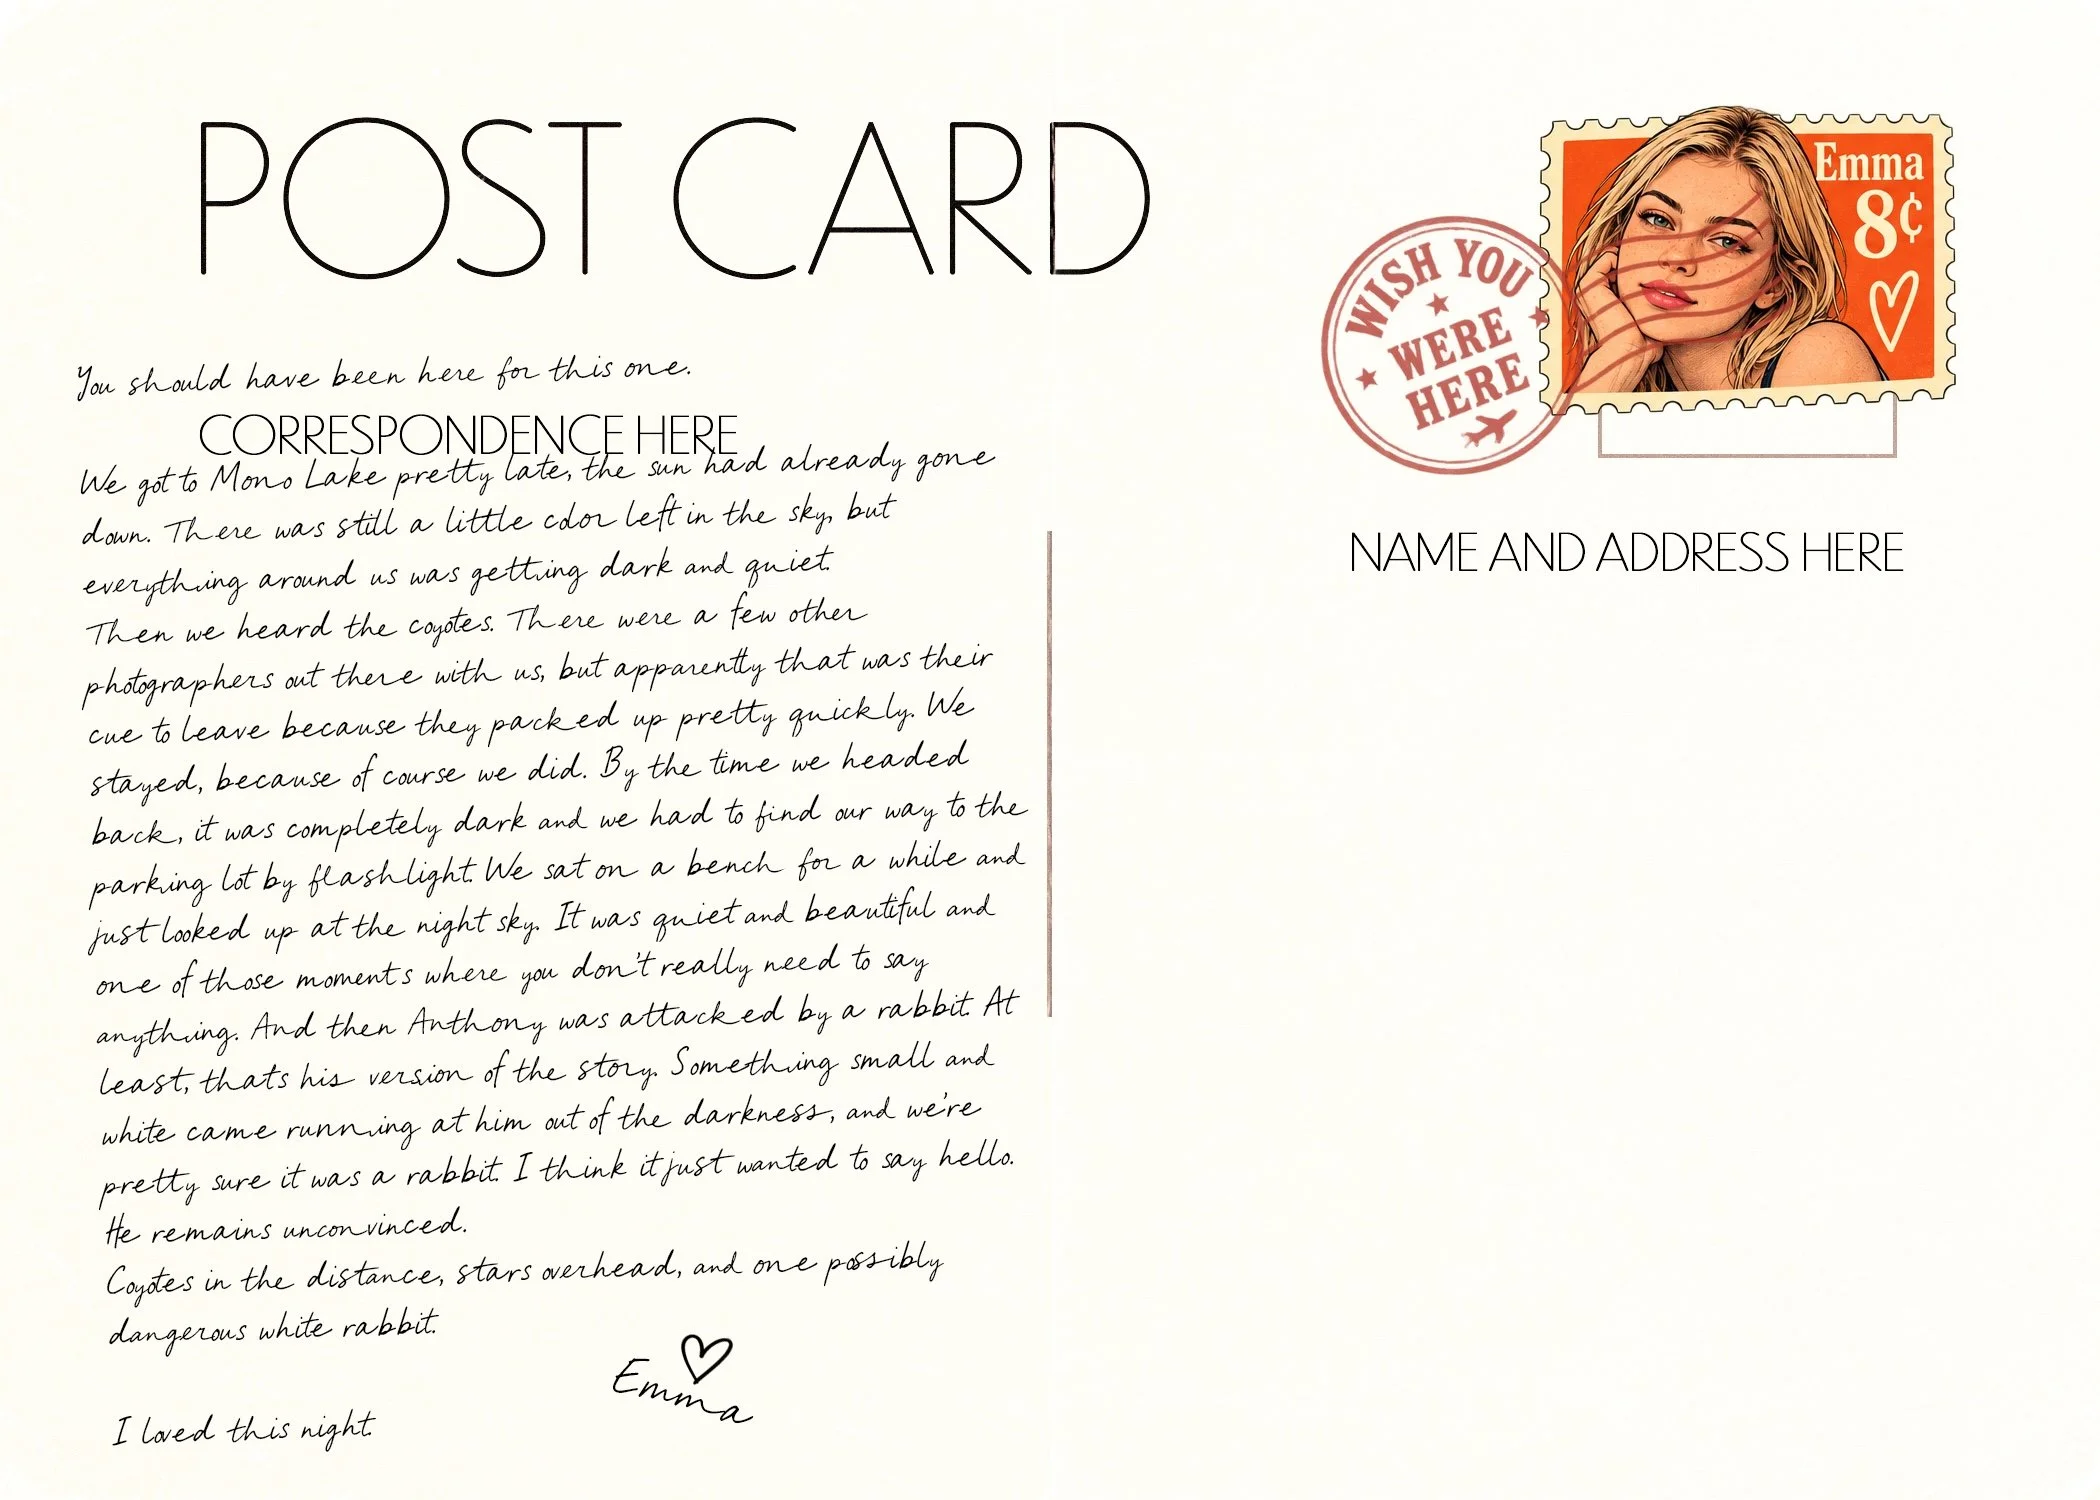 POST CARD
You should have been here for this one.
CORRESPONDENCE HERE
We got to Mono Lake pretty late, the sun had already gone
down. There was still a little color left in the sky, but
everything around us was getting dark and quiet.
Then we heard the coyotes. There were a few other
photographers out there with us, but apparently that was their
cue to leave because they packed up pretty quickly. We
stayed, because of course we did. By the time we headed
back, it was completely dark and we had to find our way to the
parking lot by flashlight. We sat on a bench for a while and
just looked up at the night sky. It was quiet and beautiful and
one of those moments where you don't really need to say
anything. And then Anthony was attacked by a rabbit. At
least, thats his version of the story. Something small and
white came running at him out of the darkness, and we're
pretty sure it was a rabbit. I think it just wanted to say hello.
He remains unconvinced.
Coyotes in the distance, stars overhead, and one possibly
dangerous white rabbit.
Emma
I loved this night.
WISH YOU
WERE
HERE
Emma
8¢
NAME AND ADDRESS HERE